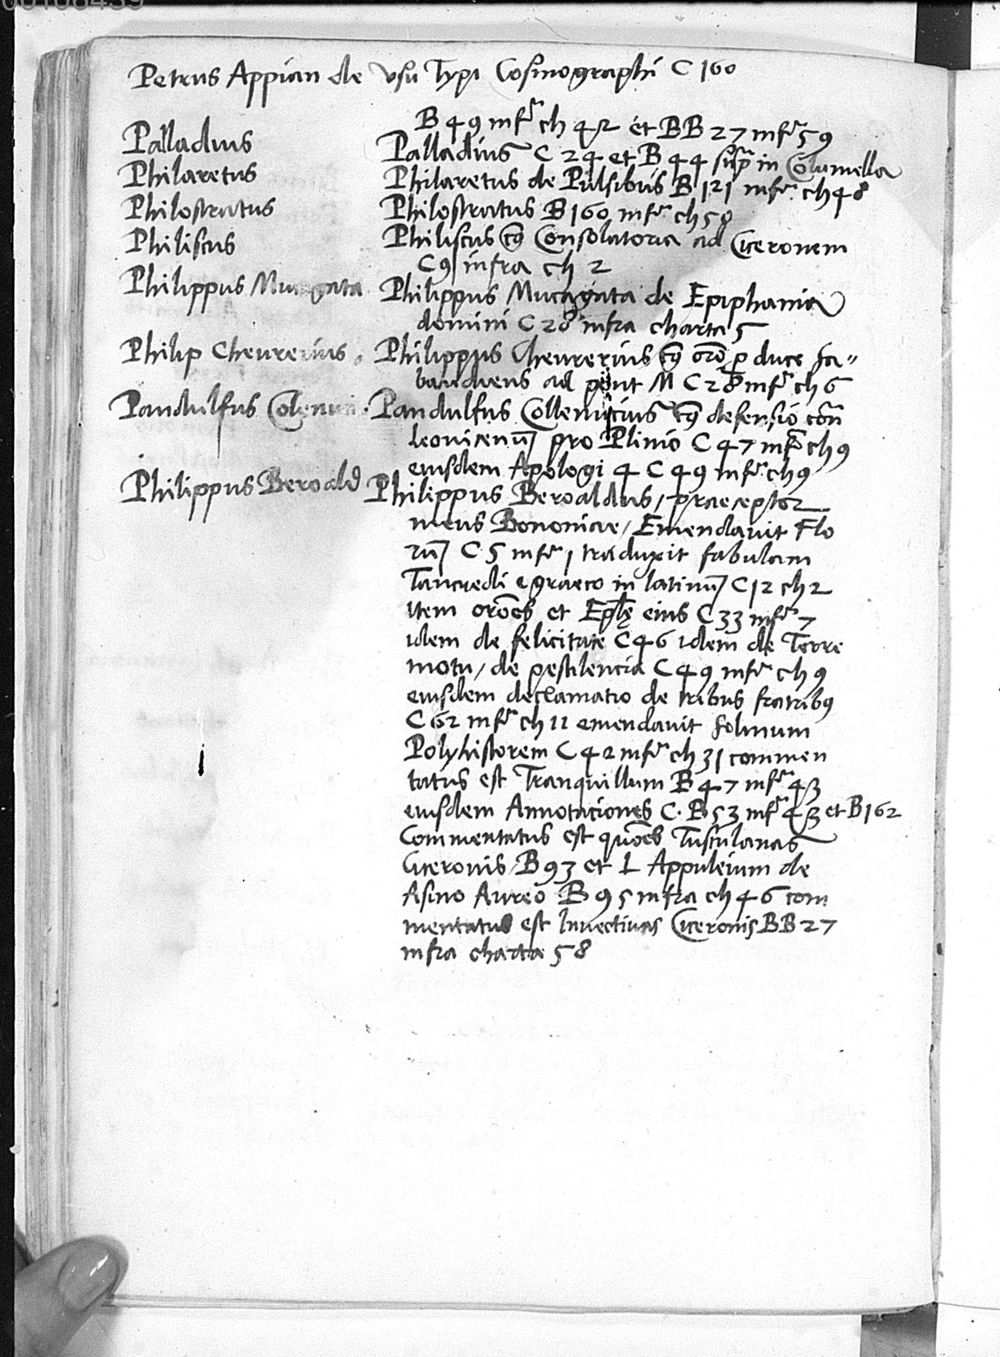 00106439
Petrus Appian de Vsu Typi Cosmographi C 160
B 49 infr ch 42 et BB 27 infr 59
Palladius Palladius C 24 et B 44 supr in Columella
Philaretus Philaretus de Pulsibus B 121 infr ch 48
Philostratus Philostratus B 160 infr ch 58
Philiscus Philiscus Consolatoria ad Ciceronem
C 91 infra ch 2
Philippus Philippus Mucagata de Epiphania
domini C 28 infra charta 5
Philip Cheurerius Philippus Cheurerius orō p duce sa-
baudiens ad M C 28 infr ch 6
Pandulfus Pandulfus Collenucius defensio con
leonicenū pro Plinio C 47 infr ch 9
eiusdem Apologi 4 C 49 infr ch 9
Philippus Beroald Philippus Beroaldus, praeceptor
meus Bononiae, Emendauit Flo
rū C 5 infr 1 traduxit fabulam
Tancredi e graeco in latinū C 12 ch 2
item orōes et Eplę eius C 33 infr 7
idem de felicitate C 46 idem de Terre
motu, de pestilencia C 49 infr ch 9
eiusdem declamatio de tribus fratribꝰ
C 62 infr ch 11 emendauit solinum
Polyhistorem C 42 infr ch 31 commen
tatus est Tranquillum B 47 infr 43
eiusdem Annotaciones C. B 53 infr 43 et B 162
Commentatus est quōes Tusculanas
Ciceronis B 93 et L Appuleium de
Asino Aureo B 95 infra ch 46 com
mentatus est Inuectiuas Ciceronis BB 27
infra chartae 58